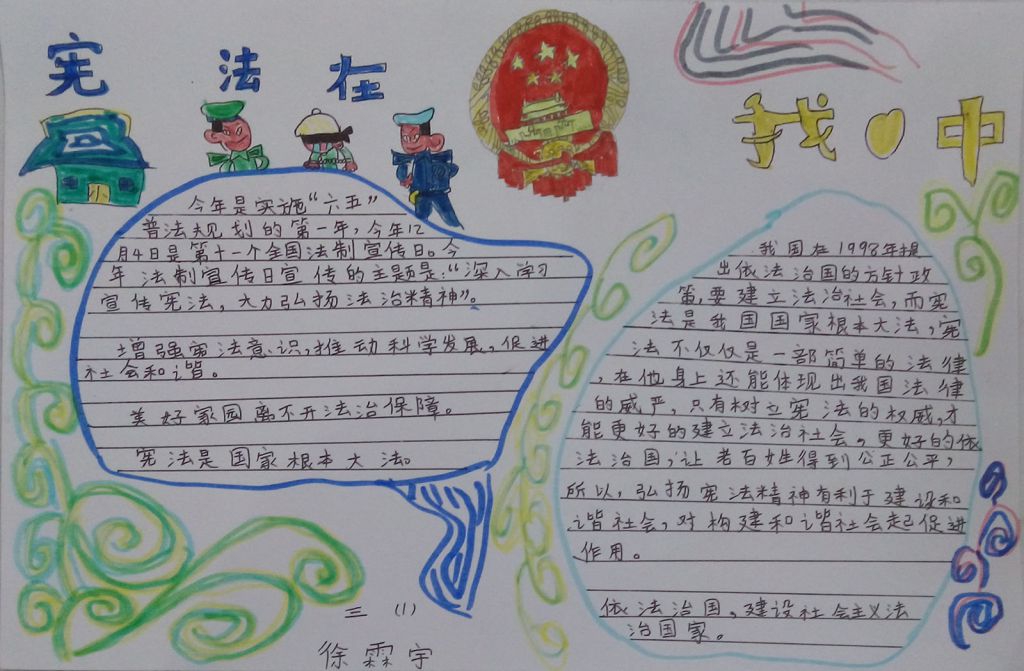 宪法在
我中
今年是实施“六五”
普法规划的第一年，今年12
月4日是第十一个全国法制宣传日。今
年法制宣传日宣传的主题是：“深入学习
宣传宪法，大力弘扬法治精神”。
增强宪法意识，推动科学发展，促进
社会和谐。
美好家园离不开法治保障。
宪法是国家根本大法。
我国在1998年提
出依法治国的方针政
策，要建立法治社会，而宪
法是我国国家根本大法，宪
法不仅仅是一部简单的法律
，在他身上还能体现出我国法律
的威严，只有树立宪法的权威，才
能更好的建立法治社会。更好的依
法治国，让老百姓得到公正公平，
所以，弘扬宪法精神有利于建设和
谐社会，对构建和谐社会起促进
作用。
依法治国，建设社会主义法
治国家。
三（1）
徐霖宇